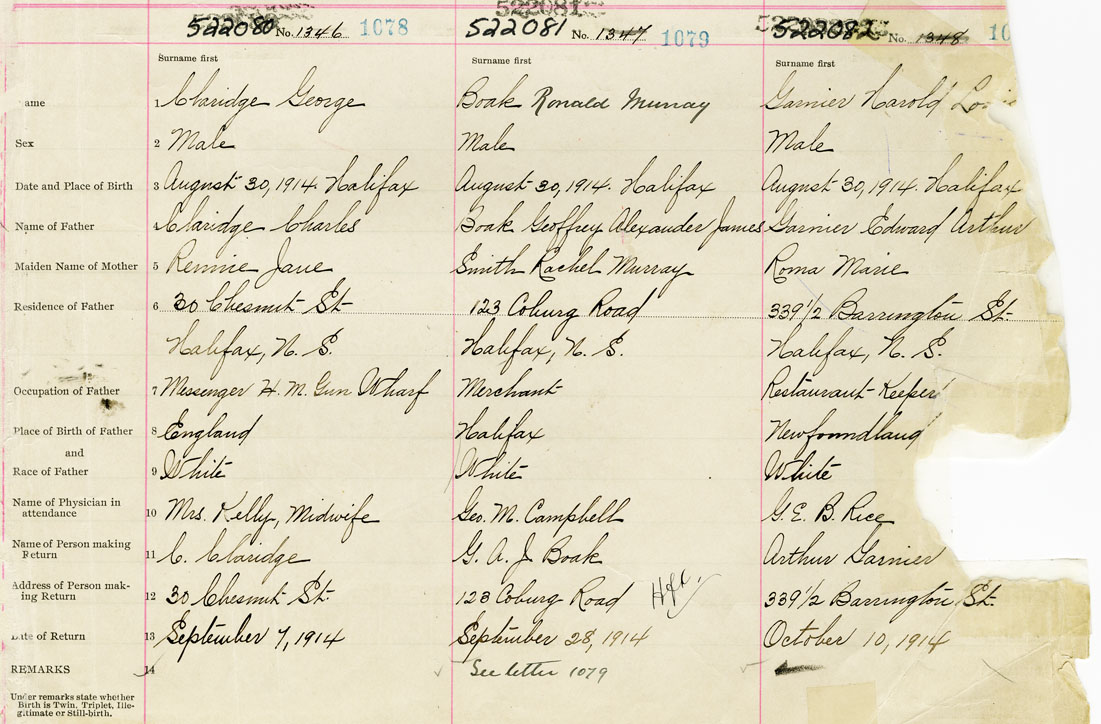 522080 No. 1346 1078 522081 No. 1347 1079 522082 No. 1348
Surname first Surname first Surname first
ame 1 Claridge George Boak Ronald Murray Garnier Harold
Sex 2 Male Male Male
Date and Place of Birth 3 August 30, 1914. Halifax August 30, 1914. Halifax August 30, 1914. Halifax
Name of Father 4 Claridge Charles Boak Geoffrey Alexander James Garnier Edward Arthur
Maiden Name of Mother 5 Rennie Jane Smith Rachel Murray Roma Marie
Residence of Father 6 30 Chesnut St. 123 Coburg Road 339 1/2 Barrington St.
Halifax, N. S. Halifax, N. S. Halifax, N. S.
Occupation of Father 7 Messenger H. M. Gun Wharf Merchant Restaurant Keeper
Place of Birth of Father 8 England Halifax Newfoundland
and
Race of Father 9 White White White
Name of Physician in
attendance 10 Mrs. Kelly, Midwife Geo. M. Campbell G. E. B. Rice
Name of Person making
Return 11 C. Claridge G. A. J. Boak Arthur Garnier
Address of Person mak-
ing Return 12 30 Chesnut St. 123 Coburg Road Hfx. 339 1/2 Barrington St.
Date of Return 13 September 7, 1914 September 28, 1914 October 10, 1914
REMARKS 14 See letter 1079
Under remarks state whether
Birth is Twin, Triplet, Ille-
gitimate or Still-birth.